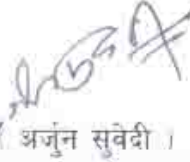 ( अर्जुन सुवेदी ।